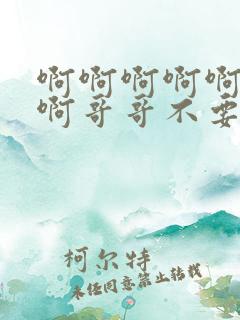 啊啊啊啊啊
啊哥哥不要
柯尔特
未经同意禁止转载